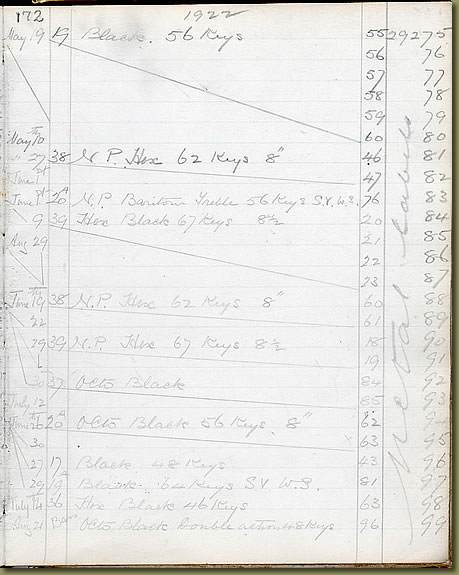 172 1922
May 19 19 Black. 56 Keys 55 29275
56 76
57 77
58 78
59 79
May 10 60 80
" 27 38 N.P. Hex 62 Keys 8" 46 81
June 1st 47 82
June 1st 20A N.P. Baritone Treble 56 Keys S.V.W.S. 76 83
9 39 Hex Black 67 Keys 8½ 20 84
Aug 29 21 85
22 86
23 87
June 19 38 N.P. Hex 62 Keys 8" 60 88
22 61 89
29 39 N.P. Hex 67 Keys 8½ 18 90
19 91
30 37 Octo Black 84 92
July 12 85 93
June 26 20A Octo Black 56 Keys 8" 62 94
30 63 95
27 17 Black 48 Keys 43 96
29 19 Black 64 Keys S.V. W.S. 81 97
July 14 36 Hex Black 46 Keys 63 98
Aug 21 Octo Black Double action 48 Keys 96 99
Metal Labels